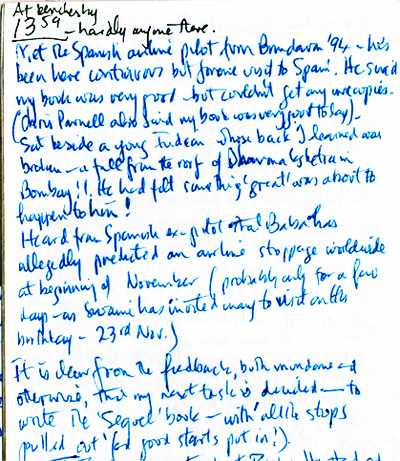 At bench by
13 59 - hardly anyone there.
Met the Spanish airline pilot from Brindavan '94 - he's
been here continuous but for one visit to Spain. He said
my book was very good - but couldn't get any more copies.
(Chris Parnell also said my book was very good today).
Sat beside a young Indian whose back I learned was
broken - a fall from the roof of Dharmakshetra in
Bombay!!. He had felt something 'great' was about to
happen to him!
Heard from Spanish ex-pilot that Baba has
allegedly predicted an airline stoppage worldwide
at beginning of November (probably only for a few
days - as Swami has invited many to visit on his
birthday - 23rd Nov.)
It is clear from the feedback, both mundane and
otherwise, that my next task is decided - to
write the 'Sequel' book - with 'all the stops
pulled out' (ad good starts put in!).